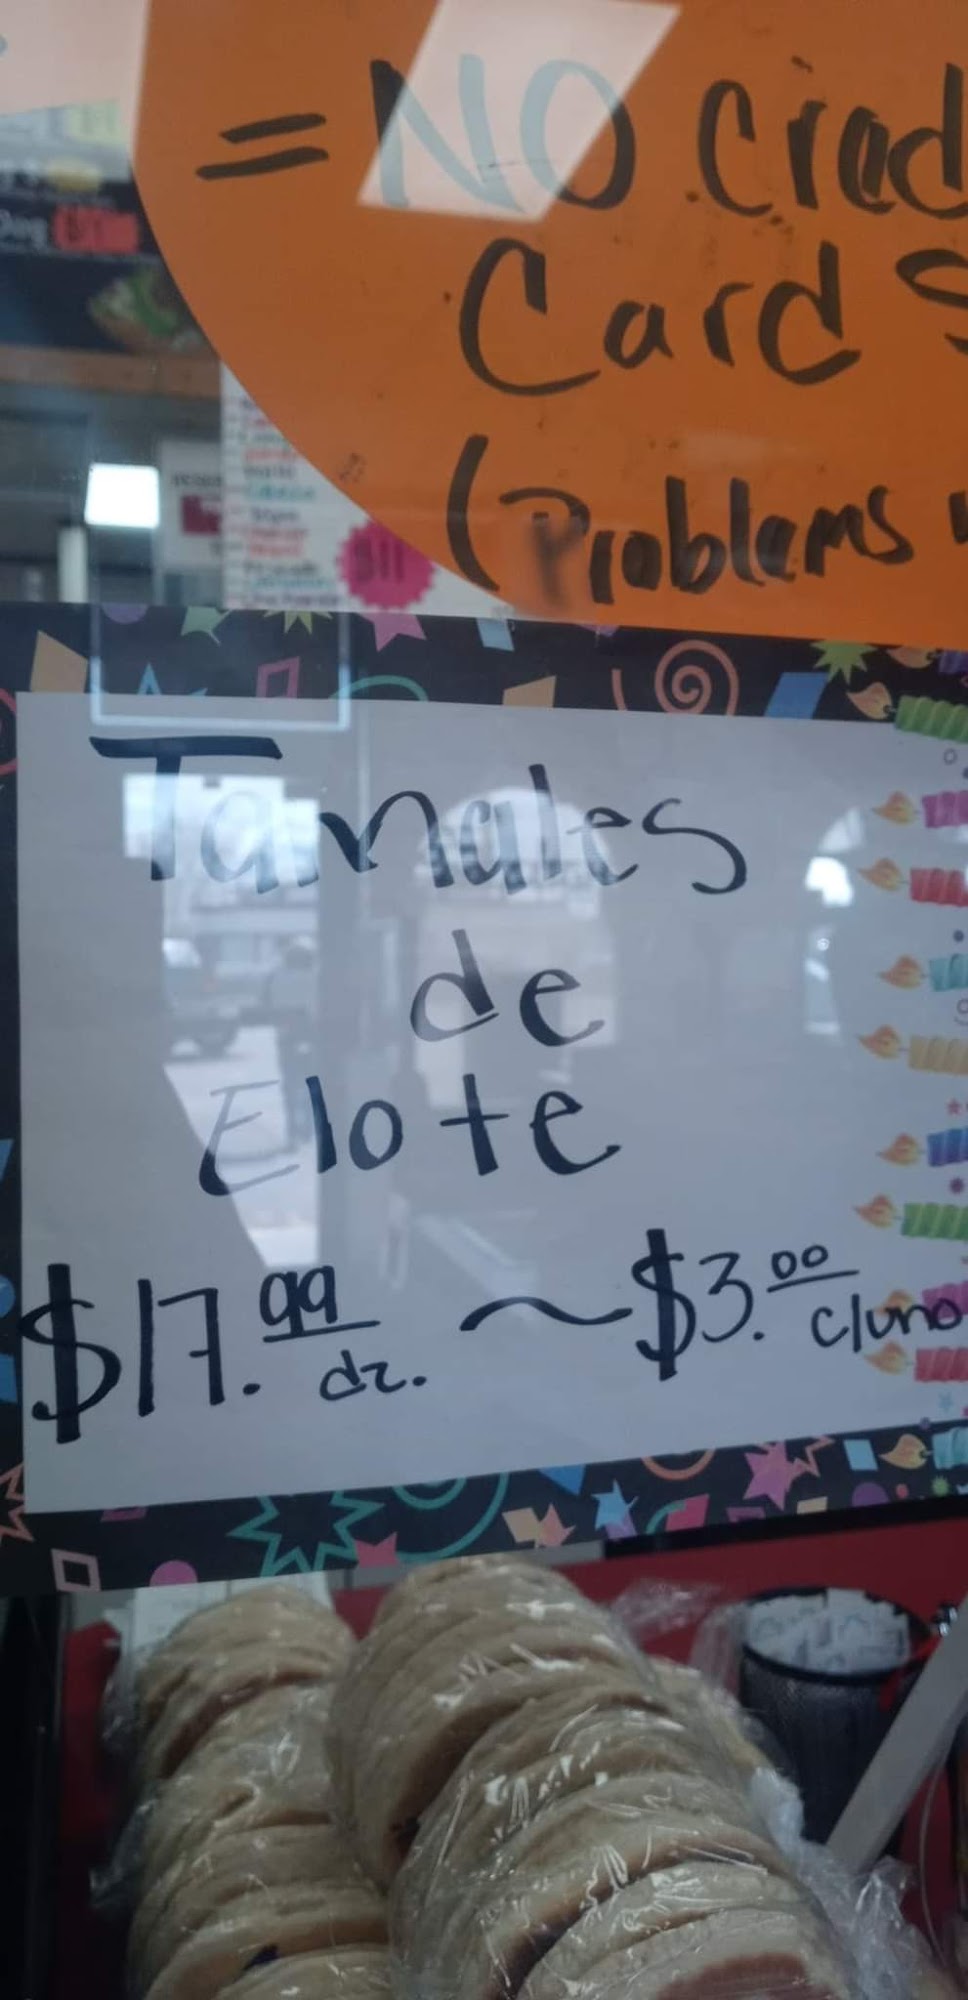 = NO Cred
Card S
(Problems
$11
Tamales
de
Elote
$17.99 dz. ~ $3.00 c/uno